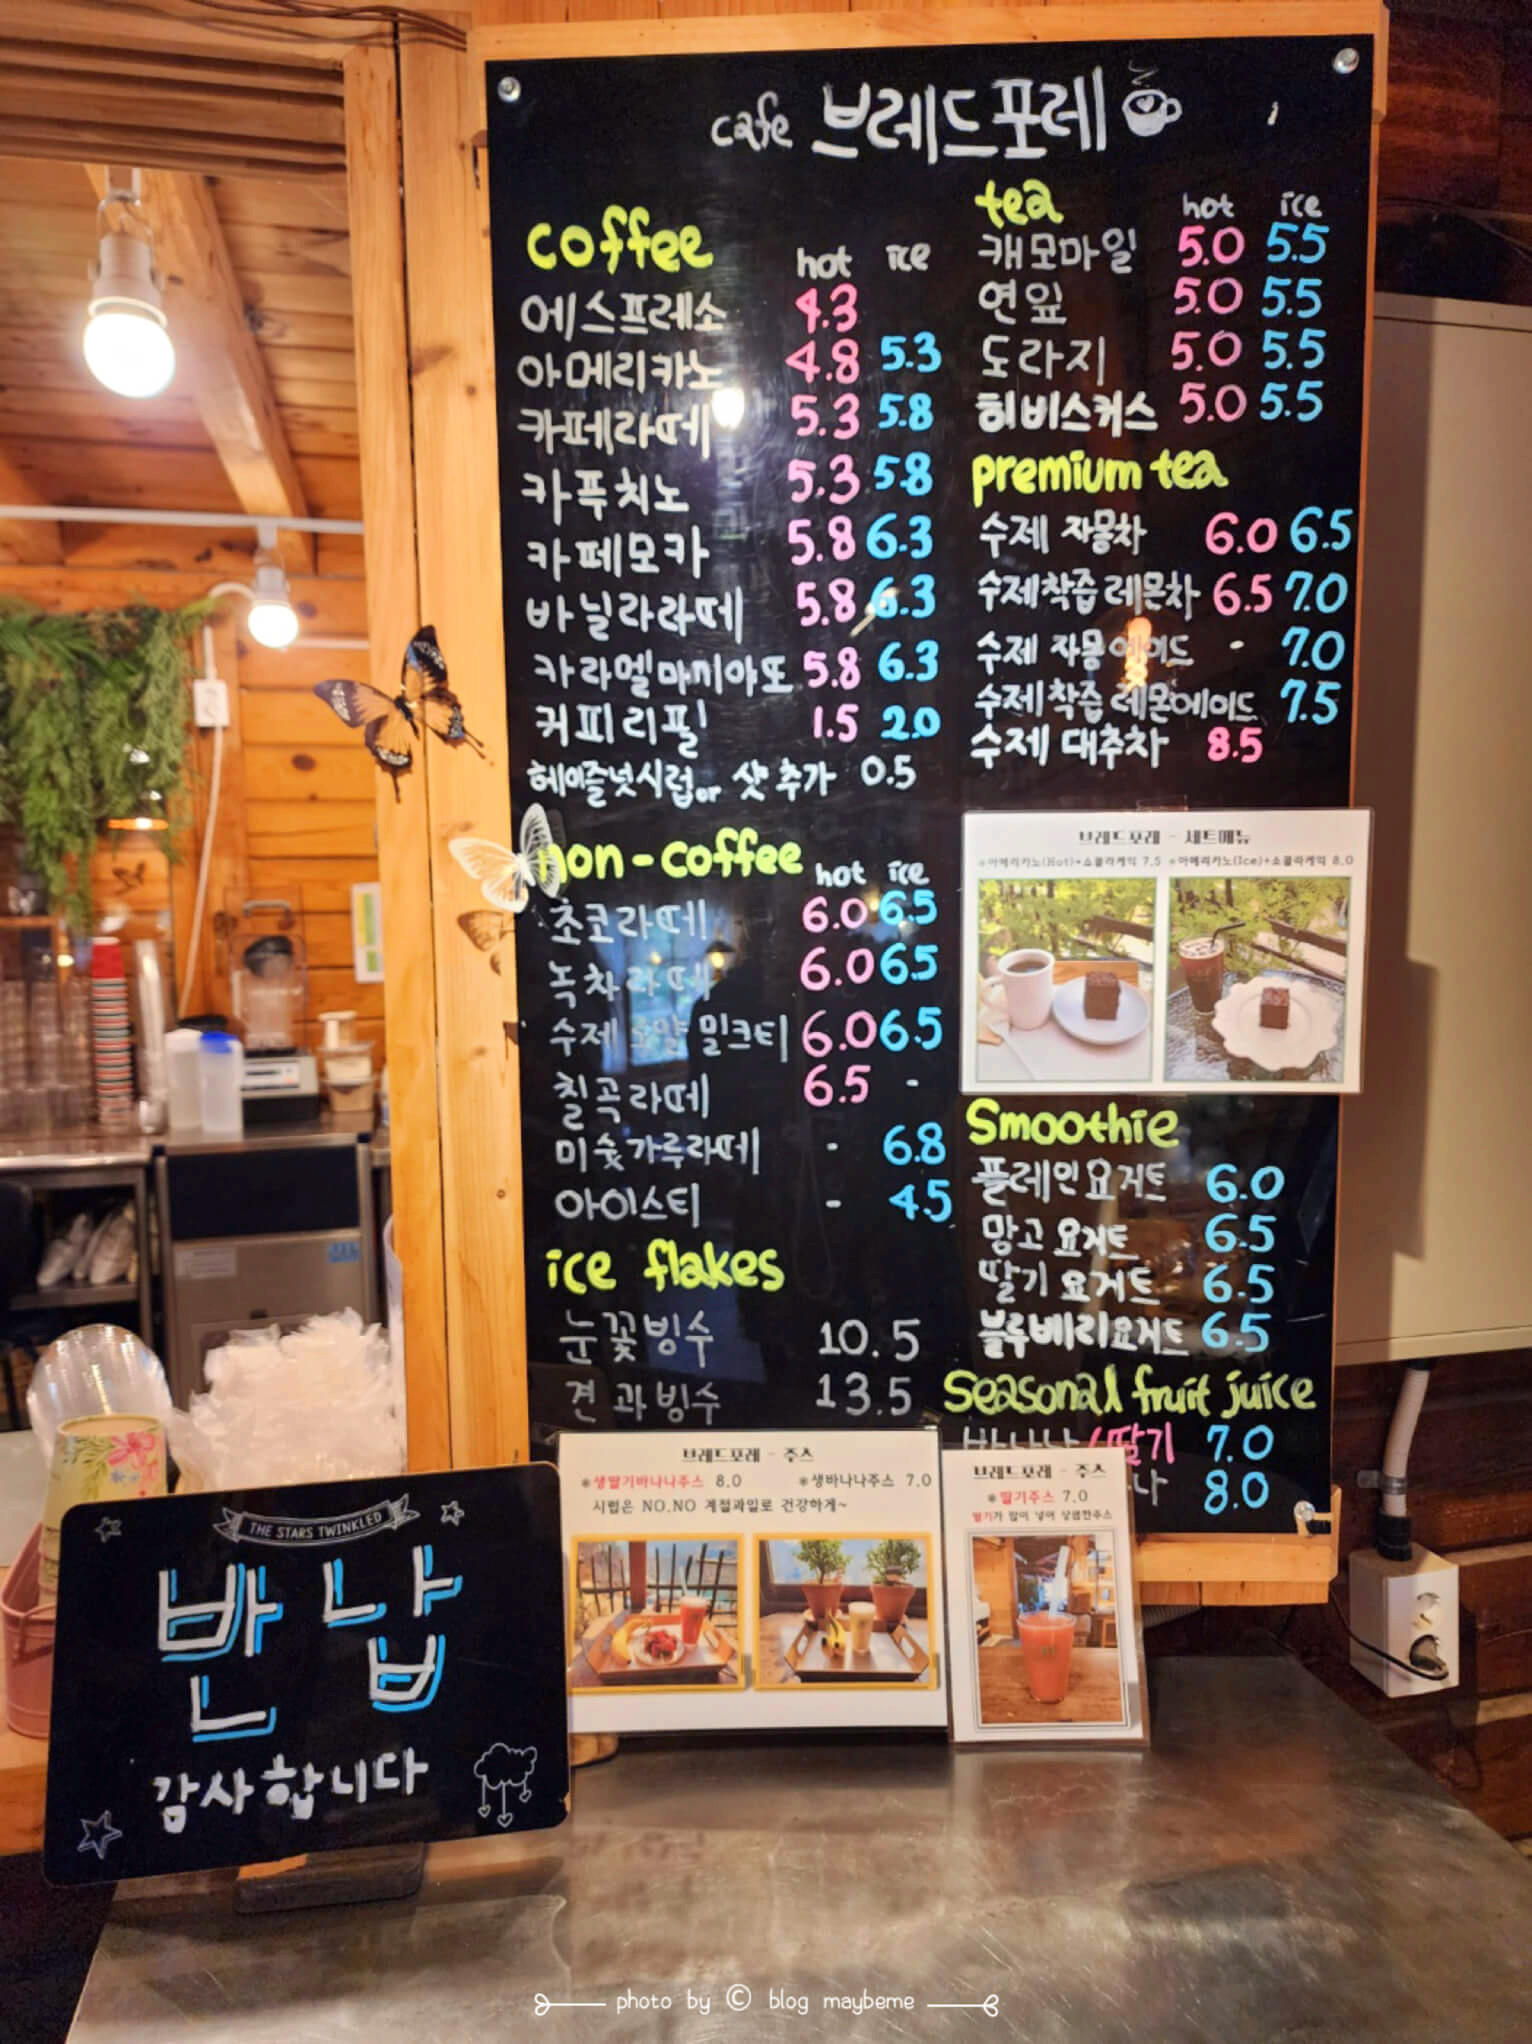 cafe 브레드포레
coffee hot ice
에스프레소 4.3
아메리카노 4.8 5.3
카페라떼 5.3 5.8
카푸치노 5.3 5.8
카페모카 5.8 6.3
바닐라라떼 5.8 6.3
카라멜마끼아또 5.8 6.3
커피리필 1.5 2.0
헤이즐넛시럽 or 샷 추가 0.5
non-coffee hot ice
초코라떼 6.0 6.5
녹차라떼 6.0 6.5
수제 밀크티 6.0 6.5
칠곡라떼 6.5 -
미숫가루라떼 - 6.8
아이스티 - 4.5
ice flakes
눈꽃빙수 10.5
견과빙수 13.5
tea hot ice
캐모마일 5.0 5.5
연잎 5.0 5.5
도라지 5.0 5.5
히비스커스 5.0 5.5
premium tea
수제 자몽차 6.0 6.5
수제착즙 레몬차 6.5 7.0
수제 자몽에이드 - 7.0
수제착즙 레몬에이드 7.5
수제 대추차 8.5
브레드포레 - 세트메뉴
*아메리카노(Hot)+쇼콜라케익 7.5 *아메리카노(Ice)+쇼콜라케익 8.0
Smoothie
플레인요거트 6.0
망고 요거트 6.5
딸기 요거트 6.5
블루베리요거트 6.5
Seasonal fruit juice
바나나/딸기 7.0
나 8.0
브레드포레 - 주스
*생딸기바나나주스 8.0 *생바나나주스 7.0
시럽은 NO.NO 계절과일로 건강하게~
브레드포레 - 주스
*딸기주스 7.0
딸기가 많이 넣어 상큼한주스
THE STARS TWINKLED
반납
감사합니다
photo by © blog maybeme